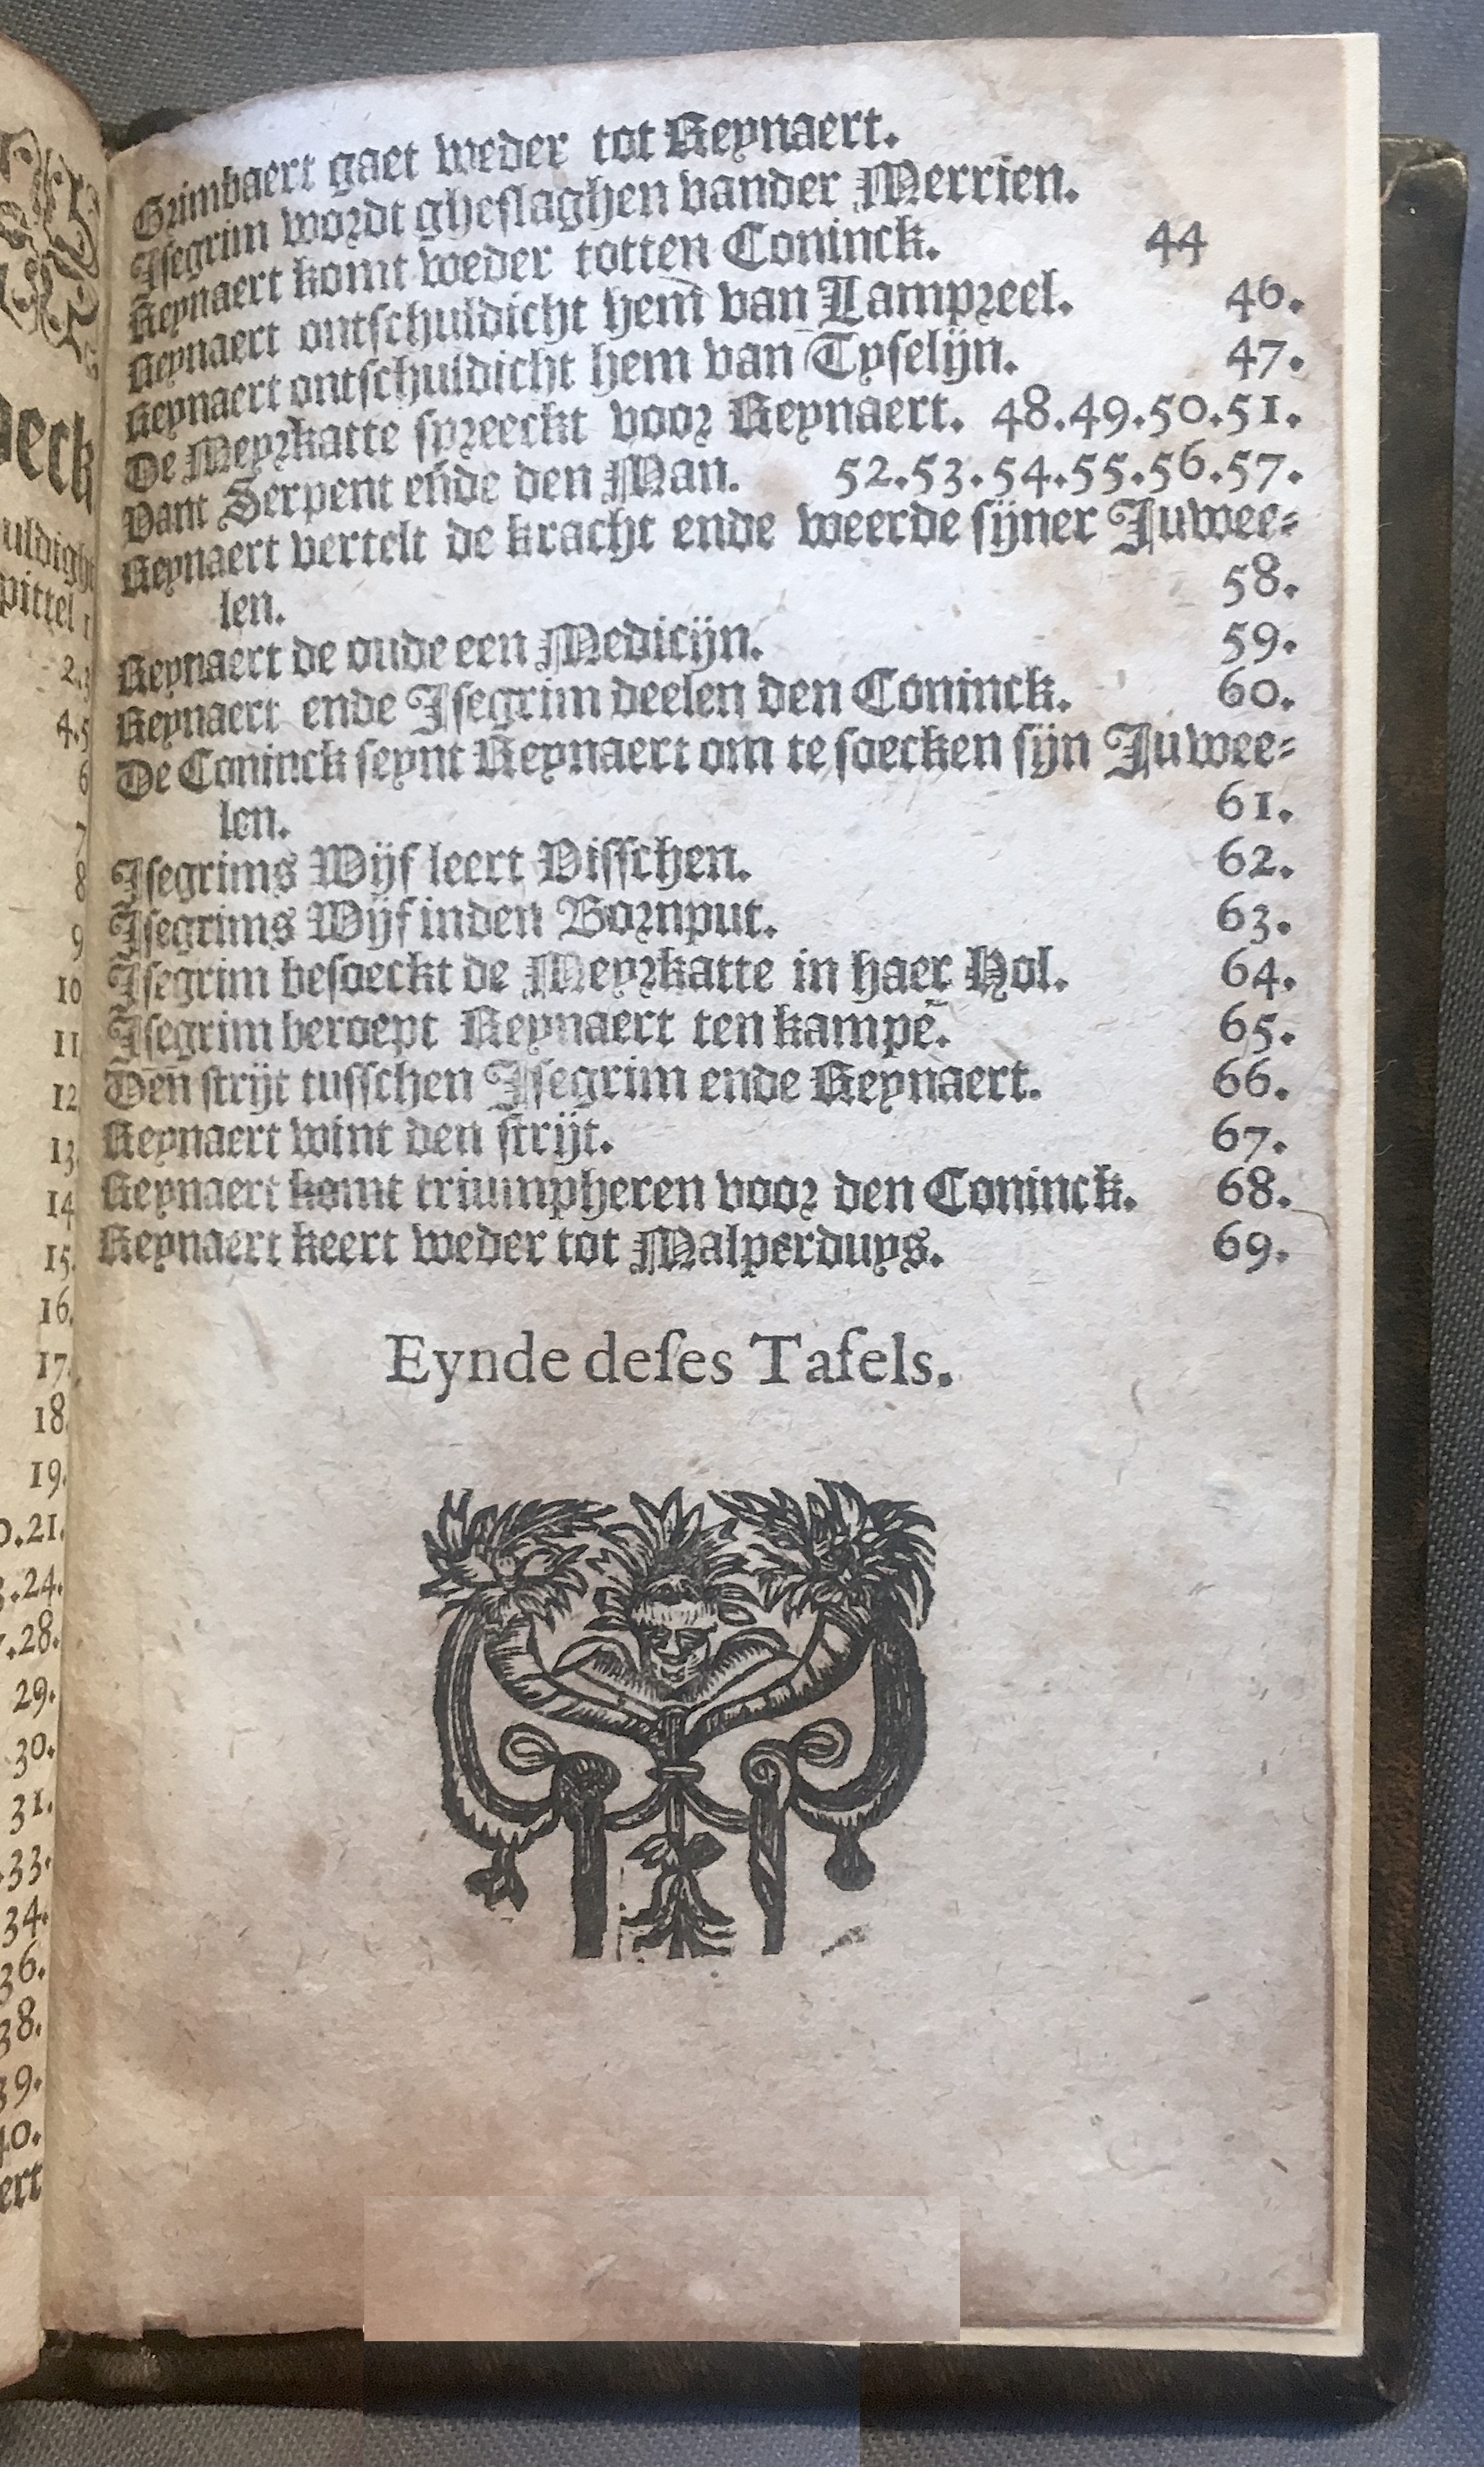 Grimbaert gaet weder tot Reynaert.
Isegrim wordt gheslaghen vander Merrien.
Reynaert komt weder totten Coninck. 44
Reynaert ontschuldicht hem van Lampreel. 46.
Reynaert ontschuldicht hem van Tyselijn. 47.
De Meyrkatte spreeckt voor Reynaert. 48.49.50.51.
Vant Serpent eñde den Man. 52.53.54.55.56.57.
Reynaert vertelt de kracht ende weerde sijner Juwee-
len. 58.
Reynaert de oude een Medicijn. 59.
Reynaert ende Isegrim deelen den Coninck. 60.
De Coninck seynt Reynaert om te soecken sijn Juwee-
len. 61.
Isegrims Wijf leert Visschen. 62.
Isegrims Wijf inden Bornput. 63.
Isegrim besoeckt de Meyrkatte in haer Hol. 64.
Isegrim beroept Reynaert ten kampē. 65.
Den strijt tusschen Isegrim ende Reynaert. 66.
Reynaert wint den strijt. 67.
Reynaert komt triumpheren voor den Coninck. 68.
Reynaert keert weder tot Malperduys. 69.
Eynde deſes Tafels.
2.3
4.5
6
7
8
9
10
11
12
13.
14
15.
16.
17.
18.
19.
29.
30.
31.
34.